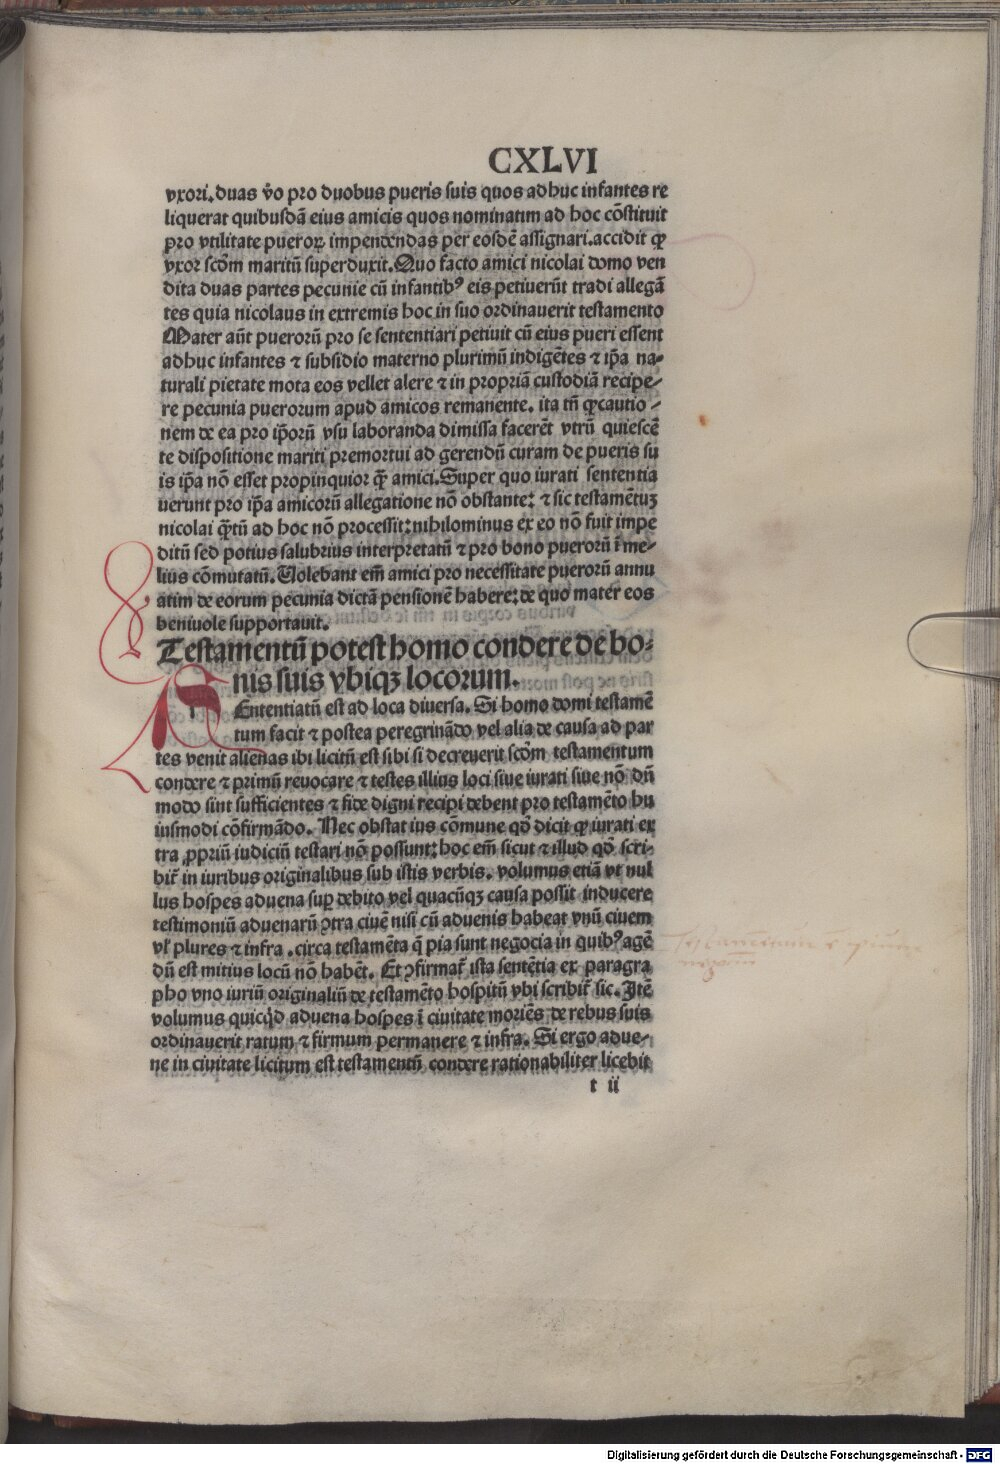 CXLVI
vxori. duas v̄o pro duobus pueris suis quos adhuc infantes re
liquerat quibusdā eius amicis quos nominatim ad hoc cōstituit
pro vtilitate pueroꝝ impendendas per eosdē assignari. accidit ꝙ
vxor scd̄m maritū superduxit. Quo facto amici nicolai domo ven
dita duas partes pecunie cū infantibꝰ eis petiuerūt tradi allegā
tes quia nicolaus in extremis hoc in suo ordinauerit testamento
Mater aūt puerorū pro se sententiari petiuit cū eius pueri essent
adhuc infantes ⁊ subsidio materno plurimū indigētes ⁊ ip̄a na-
turali pietate mota eos vellet alere ⁊ in propriā custodiā recipe-
re pecunia puerorum apud amicos remanente. ita tn̄ ꝙ cautio-
nem de ea pro ip̄orū vsu laboranda dimissa facerēt vtrū quiescē
te dispositione mariti premortui ad gerendū curam de pueris su
is ip̄a nō esset propinquior ꝙ̄ amici. Super quo iurati sententia
uerunt pro ip̄a amicorū allegatione nō obstante: ⁊ sic testamētuꝫ
nicolai ꝙ̄tū ad hoc nō processit: nihilominus ex eo nō fuit impe
ditū sed potius salubrius interpretatū ⁊ pro bono puerorū ī me-
lius cōmutatū. Uolebant em̄ amici pro necessitate puerorū annu
atim de eorum pecunia dictā pensionē habere: de quo mater eos
beniuole supportauit.
Testamentū potest homo condere de bo-
nis suis vbiqꝫ locorum.
SEntentiatū est ad loca diuersa. Si homo domi testamē
tum facit ⁊ postea peregrinādo vel alia de causa ad par
tes venit alienas ibi licitū est sibi si decreuerit scd̄m testamentum
condere ⁊ primū reuocare ⁊ testes illius loci siue iurati siue nō dū
modo sint sufficientes ⁊ fide digni recipi debent pro testamēto hu
iusmodi cōfirmādo. Nec obstat ius cōmune qd̄ dicit ꝙ iurati ex
tra ꝓpriū iudiciū testari nō possunt: hoc em̄ sicut ⁊ illud qd̄ scri-
bit̄ in iuribus originalibus sub istis verbis. volumus etiā vt nul
lus hospes aduena suꝑ debito vel quacūqꝫ causa possit inducere
testimoniū aduenarū ꝯtra ciuē nisi cū aduenis habeat vnū ciuem
vl̓ plures ⁊ infra. circa testamēta q̄ pia sunt negocia in quibꝰ agē
dū est mitius locū nō habēt. Et ꝯfirmat̄ ista sentētia ex paragra
pho vno iuriū originaliū de testamēto hospitū vbi scribit̄ sic. Itē
volumus quicq̇d aduena hospes ī ciuitate moriēs de rebus suis
ordinauerit ratum ⁊ firmum permanere ⁊ infra. Si ergo adue-
ne in ciuitate licitum est testamentū condere rationabiliter licebit
t ii
Digitalisierung gefördert durch die Deutsche Forschungsgemeinschaft - DFG